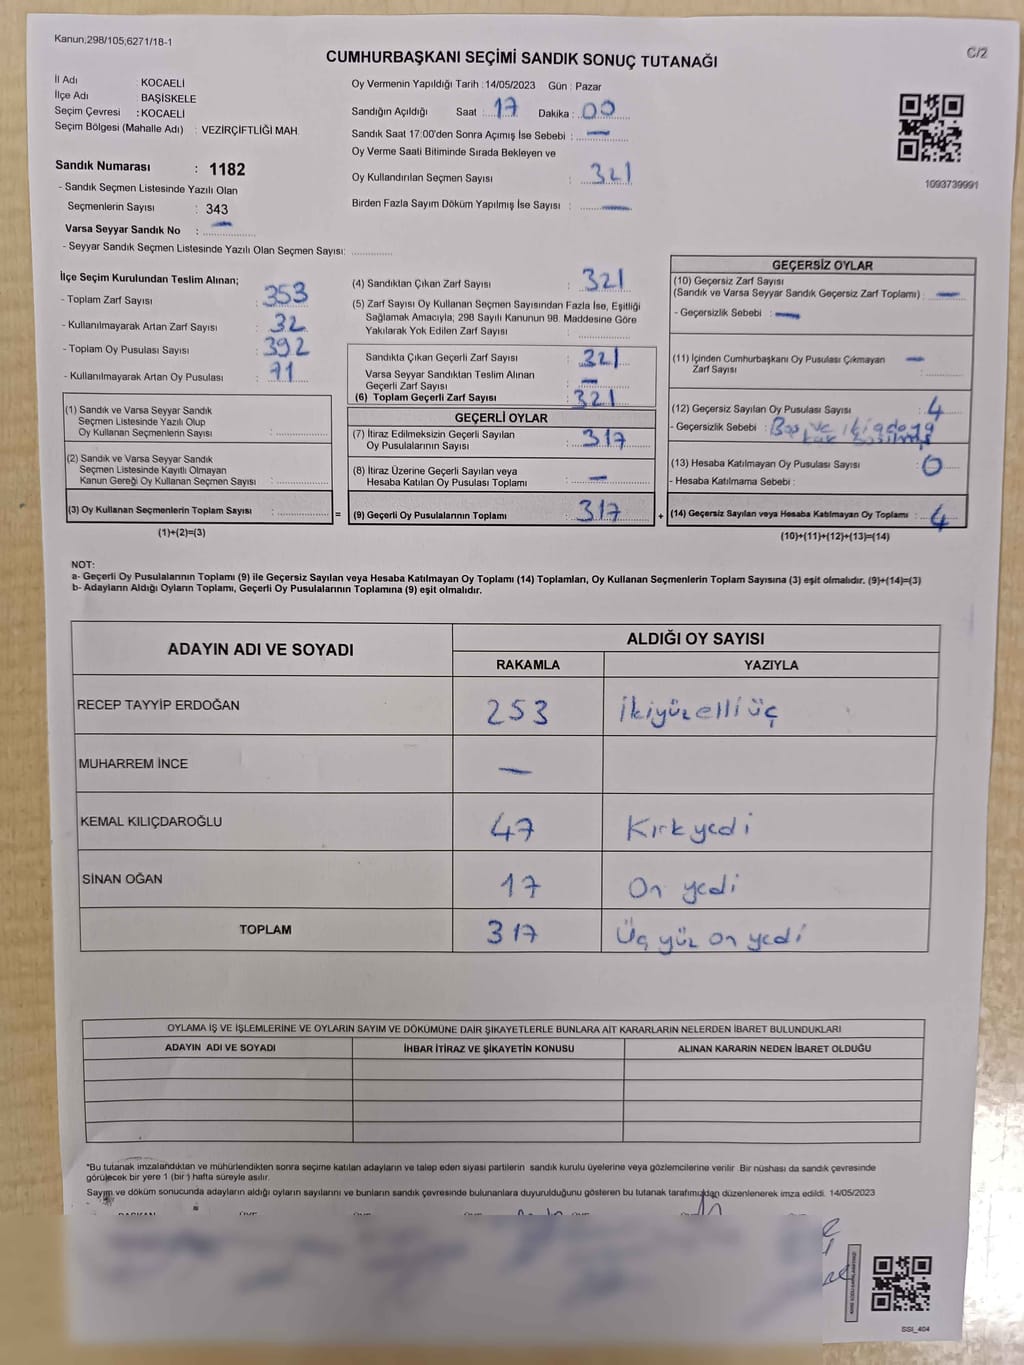 Kanun;298/105;6271/18-1
C/2
CUMHURBAŞKANI SEÇİMİ SANDIK SONUÇ TUTANAĞI
İl Adı : KOCAELİ
İlçe Adı : BAŞİSKELE
Seçim Çevresi : KOCAELİ
Seçim Bölgesi (Mahalle Adı) : VEZİRÇİFTLİĞİ MAH.
Sandık Numarası : 1182
- Sandık Seçmen Listesinde Yazılı Olan
Seçmenlerin Sayısı : 343
Varsa Seyyar Sandık No : —
- Seyyar Sandık Seçmen Listesinde Yazılı Olan Seçmen Sayısı:
Oy Vermenin Yapıldığı Tarih : 14/05/2023 Gün : Pazar
Sandığın Açıldığı Saat : 17 Dakika : 00
Sandık Saat 17:00'den Sonra Açımış İse Sebebi : —
Oy Verme Saati Bitiminde Sırada Bekleyen ve
Oy Kullandırılan Seçmen Sayısı : 321
Birden Fazla Sayım Döküm Yapılmış İse Sayısı : —
1093739991
İlçe Seçim Kurulundan Teslim Alınan;
- Toplam Zarf Sayısı : 353
- Kullanılmayarak Artan Zarf Sayısı : 32
- Toplam Oy Pusulası Sayısı : 392
- Kullanılmayarak Artan Oy Pusulası : 71
(1) Sandık ve Varsa Seyyar Sandık
Seçmen Listesinde Yazılı Olup
Oy Kullanan Seçmenlerin Sayısı :
(2) Sandık ve Varsa Seyyar Sandık
Seçmen Listesinde Kayıtlı Olmayan
Kanun Gereği Oy Kullanan Seçmen Sayısı :
(3) Oy Kullanan Seçmenlerin Toplam Sayısı :
(1)+(2)=(3)
=
(4) Sandıktan Çıkan Zarf Sayısı : 321
(5) Zarf Sayısı Oy Kullanan Seçmen Sayısından Fazla İse, Eşitliği
Sağlamak Amacıyla; 298 Sayılı Kanunun 98. Maddesine Göre
Yakılarak Yok Edilen Zarf Sayısı :
Sandıkta Çıkan Geçerli Zarf Sayısı : 321
Varsa Seyyar Sandıktan Teslim Alınan
Geçerli Zarf Sayısı : —
(6) Toplam Geçerli Zarf Sayısı : 321
GEÇERLİ OYLAR
(7) İtiraz Edilmeksizin Geçerli Sayılan
Oy Pusulasının Sayısı : 317
(8) İtiraz Üzerine Geçerli Sayılan veya
Hesaba Katılan Oy Pusulası Toplamı : —
(9) Geçerli Oy Pusulalarının Toplamı : 317
+
GEÇERSİZ OYLAR
(10) Geçersiz Zarf Sayısı
(Sandık ve Varsa Seyyar Sandık Geçersiz Zarf Toplamı) : —
- Geçersizlik Sebebi : —
(11) İçinden Cumhurbaşkanı Oy Pusulası Çıkmayan —
Zarf Sayısı :
(12) Geçersiz Sayılan Oy Pusulası Sayısı : 4
- Geçersizlik Sebebi : Boş ve iki adaya
basılmış
(13) Hesaba Katılmayan Oy Pusulası Sayısı : 0
- Hesaba Katılmama Sebebi :
(14) Geçersiz Sayılan veya Hesaba Katılmayan Oy Toplamı : 4
(10)+(11)+(12)+(13)=(14)
NOT:
a- Geçerli Oy Pusulalarının Toplamı (9) ile Geçersiz Sayılan veya Hesaba Katılmayan Oy Toplamı (14) Toplamları, Oy Kullanan Seçmenlerin Toplam Sayısına (3) eşit olmalıdır. (9)+(14)=(3)
b- Adayların Aldığı Oyların Toplamı, Geçerli Oy Pusulalarının Toplamına (9) eşit olmalıdır.
ADAYIN ADI VE SOYADI ALDIĞI OY SAYISI
RAKAMLA YAZIYLA
RECEP TAYYİP ERDOĞAN 253 İkiyüzelliüç
MUHARREM İNCE —
KEMAL KILIÇDAROĞLU 47 Kırkyedi
SİNAN OĞAN 17 On yedi
TOPLAM 317 Üç yüz on yedi
OYLAMA İŞ VE İŞLEMLERİNE VE OYLARIN SAYIM VE DÖKÜMÜNE DAİR ŞİKAYETLERLE BUNLARA AİT KARARLARIN NELERDEN İBARET BULUNDUKLARI
ADAYIN ADI VE SOYADI İHBAR İTİRAZ VE ŞİKAYETİN KONUSU ALINAN KARARIN NEDEN İBARET OLDUĞU
*Bu tutanak imzalandıktan ve mühürlendikten sonra seçime katılan adayların ve talep eden siyasi partilerin sandık kurulu üyelerine veya gözlemcilerine verilir. Bir nüshası da sandık çevresinde
görülecek bir yere 1 (bir) hafta süreyle asılır.
Sayım ve döküm sonucunda adayların aldığı oyların sayılarını ve bunların sandık çevresinde bulunanlara duyurulduğunu gösteren bu tutanak tarafımızdan düzenlenerek imza edildi. 14/05/2023
SSI_404